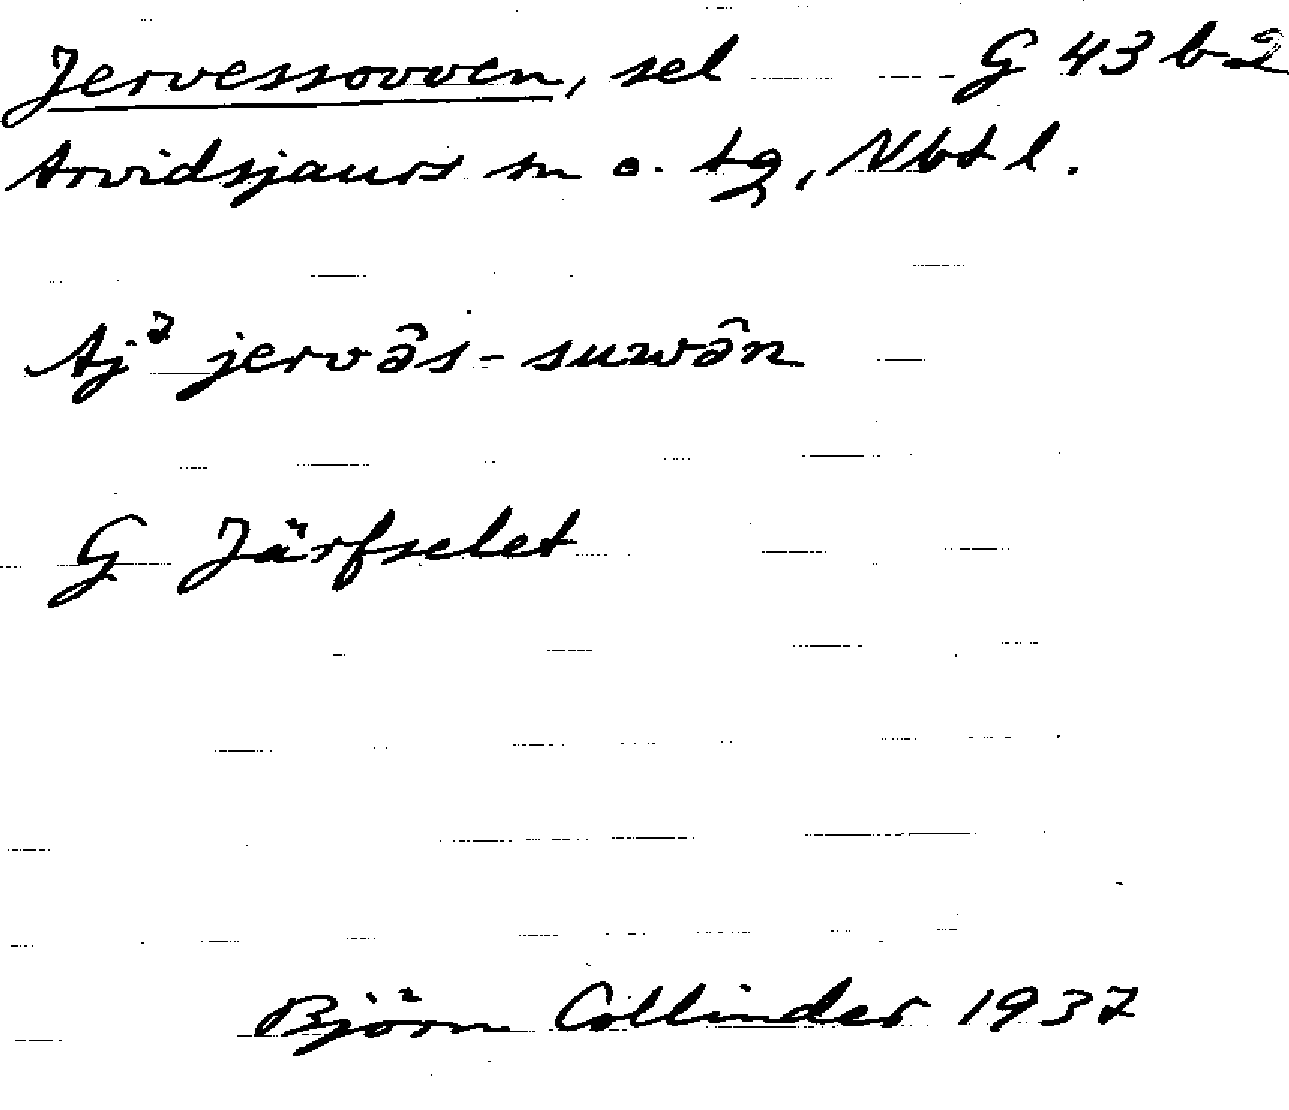 Jervessovven, sel G 43 b 2
Arvidsjaurs sn o. tg, Nbt l.
Aj² jervâs-suwân
G Järfselet
Björn Collinder 1937